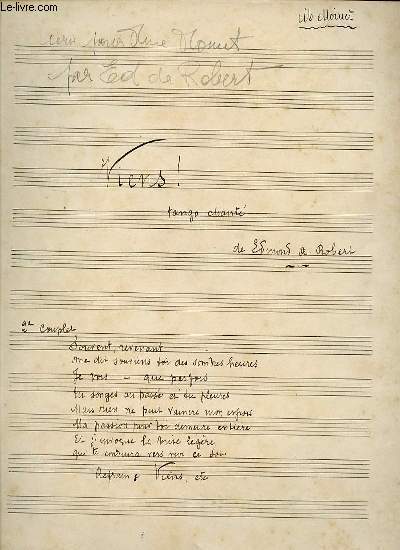 Le-Livre.com
par Ed de Robert
Viens !
tango chanté
de Edmond de Robert
2e Couplet
Souvent, revenant
me dis souviens toi des sombres heures
Je vois que parfois
Tu songes au passé et tu pleures
Mais rien ne peut vaincre mon espoir
Ma passion pour toi demeure entière
Et j'invoque la brise légère
qui te conduira vers moi ce soir
Refrain : Viens, etc